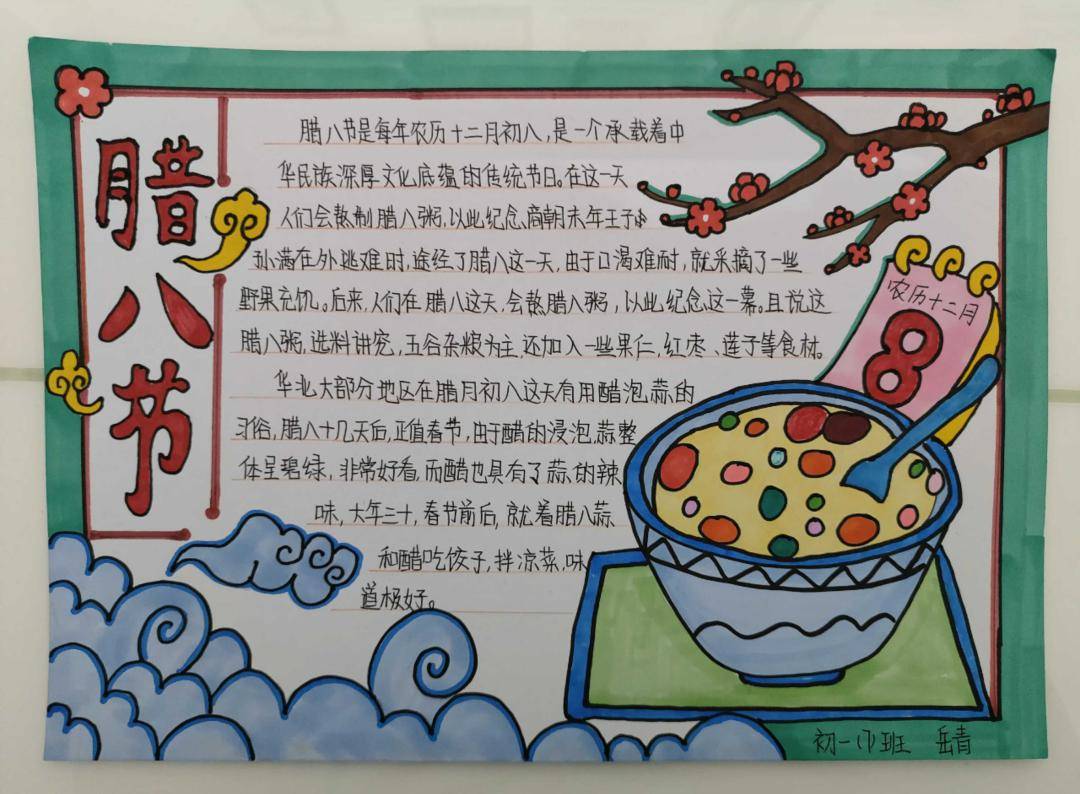 腊八节
腊八节是每年农历十二月初八,是一个承载着中
华民族深厚文化底蕴的传统节日。在这一天
人们会熬制腊八粥,以此纪念、商朝末年王子
孙满在外逃难时,途经了腊八这一天,由于口渴难耐,就采摘了一些
野果充饥。后来,人们在腊八这天,会熬腊八粥,以此纪念这一幕。且说这
腊八粥,选料讲究,五谷杂粮为主,还加入一些果仁,红枣、莲子等食材。
华北大部分地区在腊月初八这天有用醋泡蒜的
习俗,腊八十几天后,正值春节,由于醋的浸泡,蒜整
体呈碧绿,非常好看,而醋也具有了蒜的辣
味,大年三十,春节前后,就着腊八蒜
和醋吃饺子,拌凉菜,味
道极好。
农历十二月
8
初一(7)班 岳青